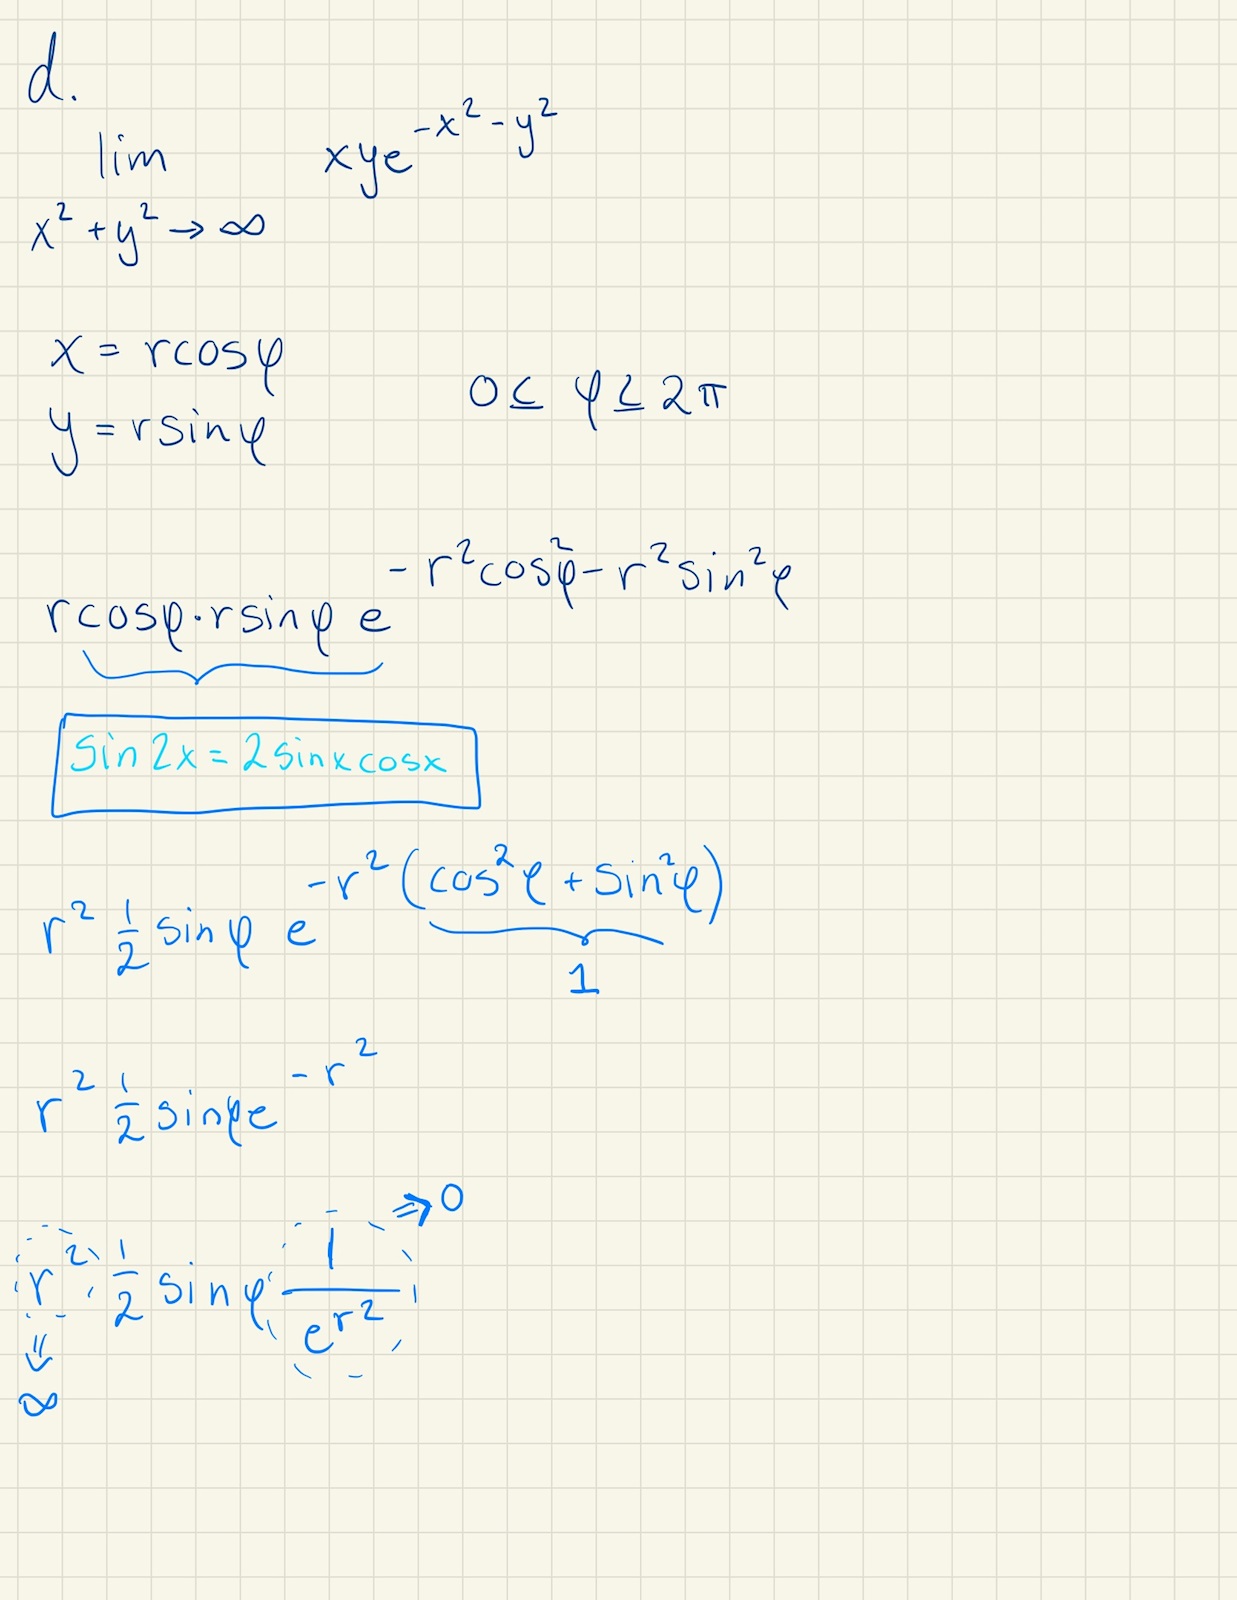 d.
lim xye^{-x²-y²}
x² + y² → ∞
x = rcosφ
0 ≤ φ ≤ 2π
y = rsinφ
rcosφ·rsinφ e^{-r²cos²φ-r²sin²φ}
sin2x = 2sinxcosx
r² 1/2 sinφ e^{-r²(cos²φ + sin²φ)}
1
r² 1/2 sinφe^{-r²}
⇒ 0
r² · 1/2 sinφ 1/e^{r²}
⇓
∞